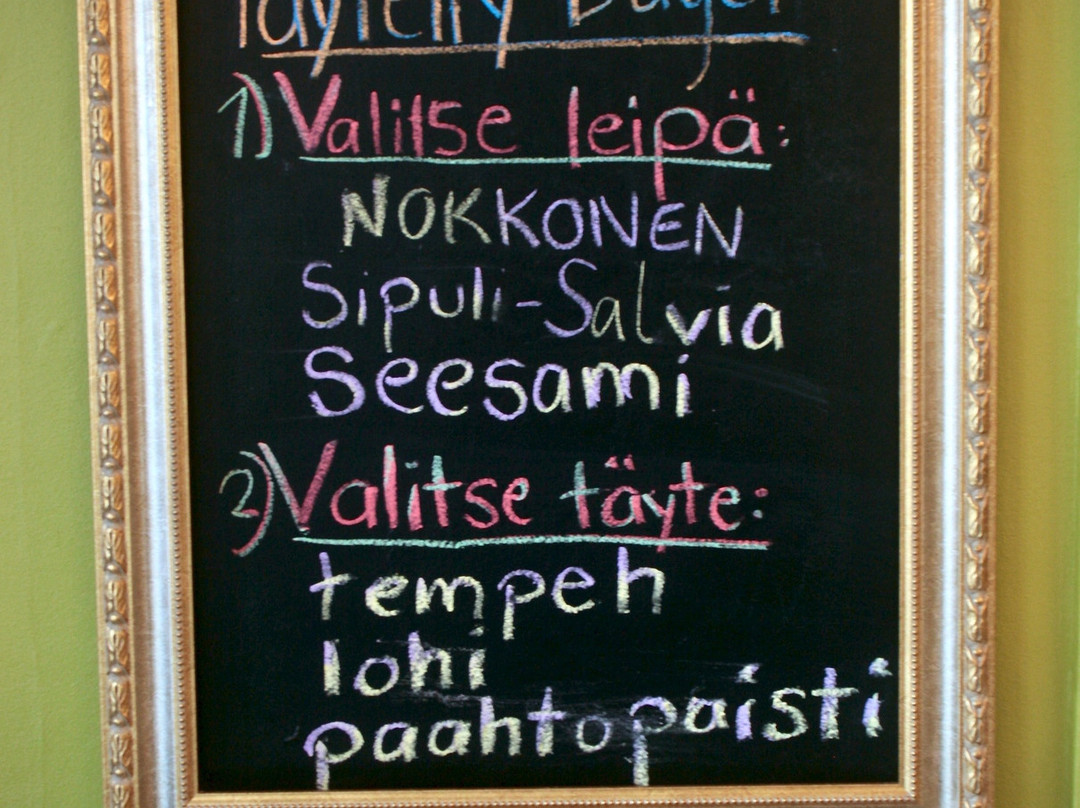 Täytetty Bagel
1) Valitse leipä:
NOKKONEN
Sipuli-Salvia
Seesami
2) Valitse täyte:
tempeh
lohi
paahtopaisti